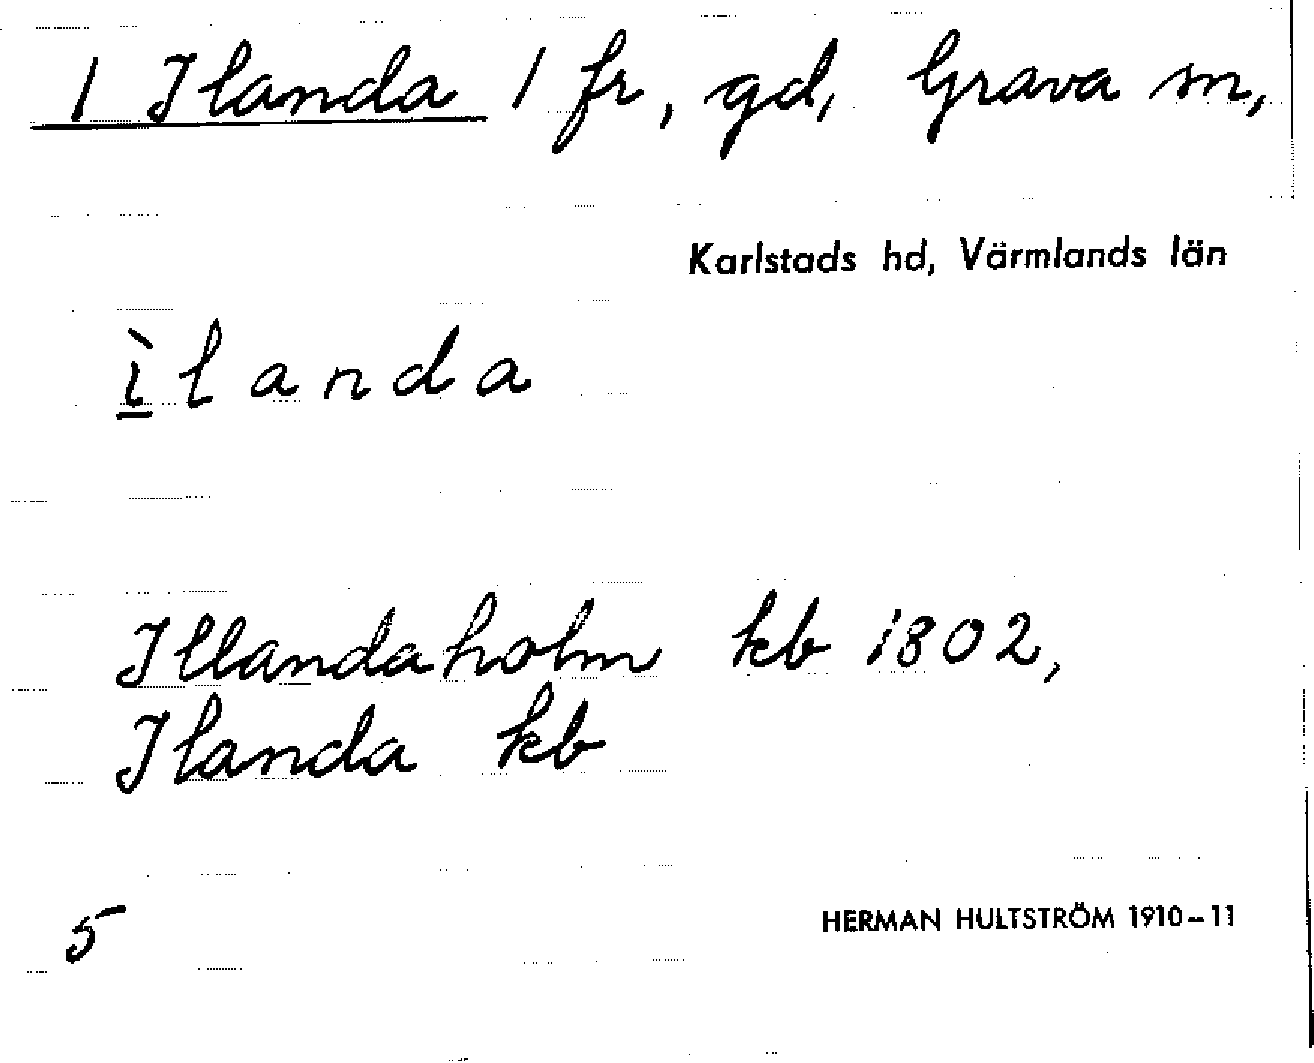 1 Ilanda 1 fr, gd, Grava sn,
Karlstads hd, Värmlands län
ì̲landa
Illandaholm kb 1802,
Ilanda kb
5
HERMAN HULTSTRÖM 1910–11